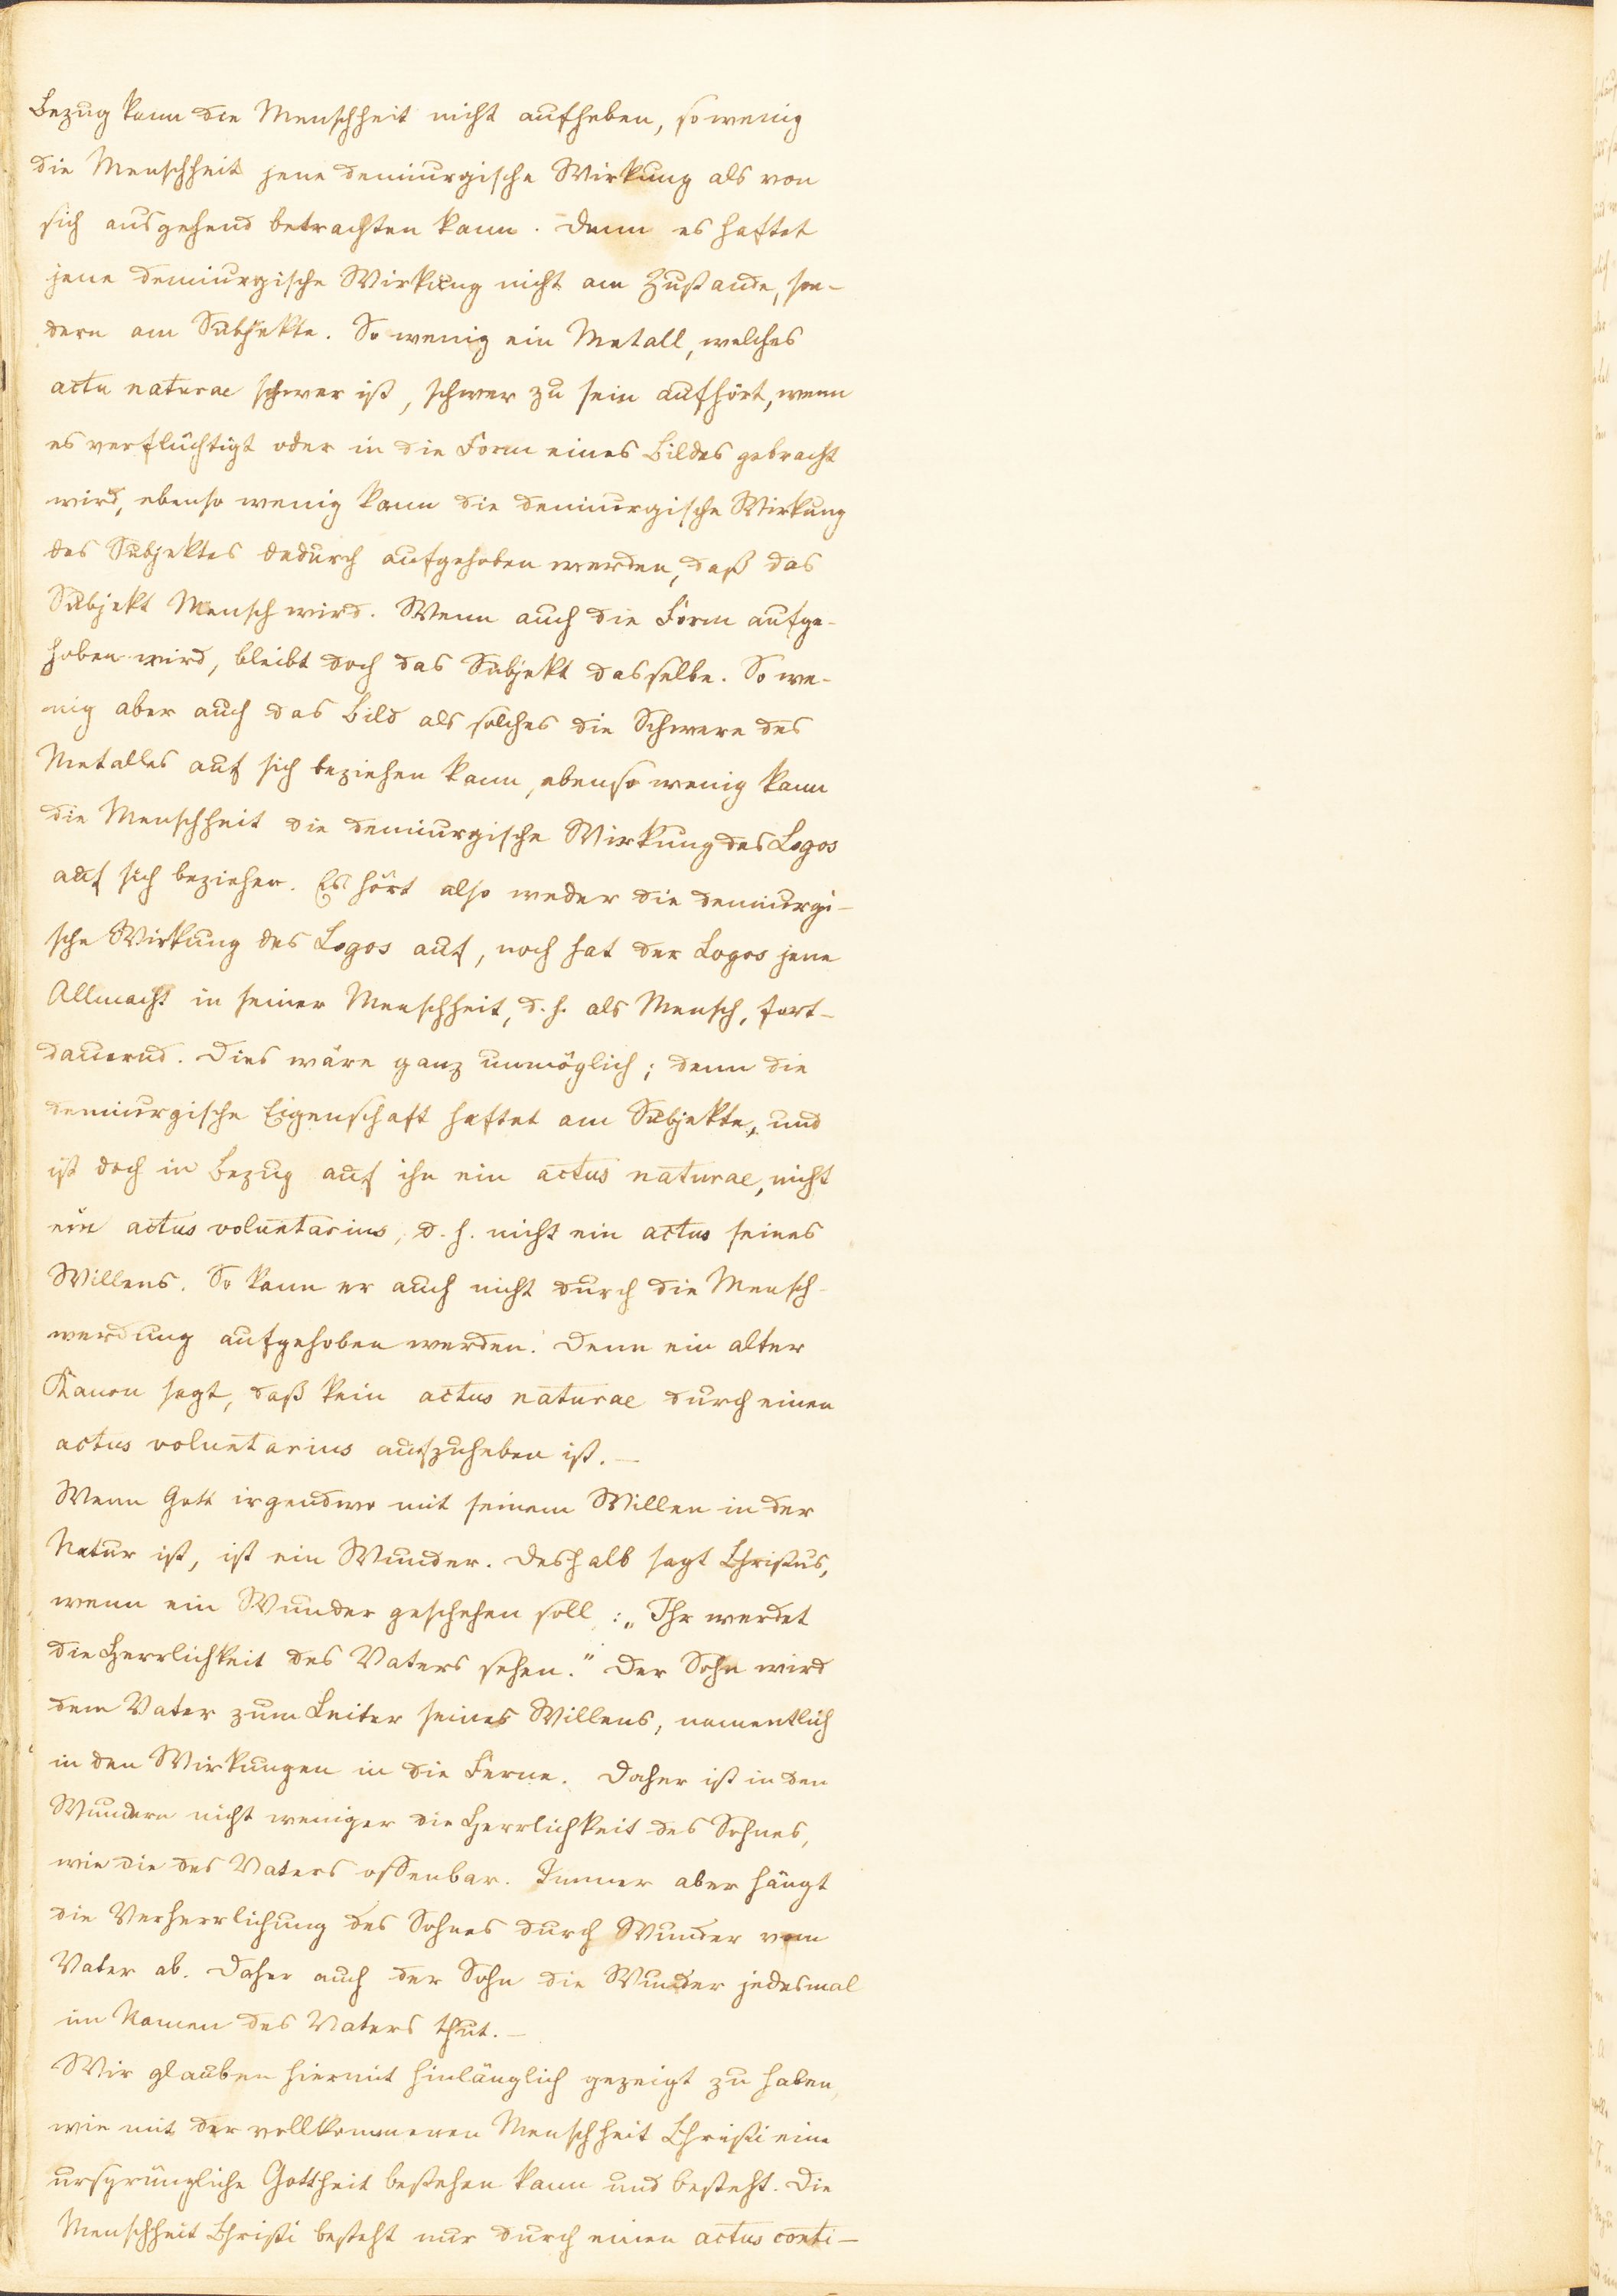 Bezug kann die Menschheit nicht aufheben, so wenig
die Menschheit jene demiurgische Wirkung als von
sich ausgehend betrachten kann. Denn es haftet
jene demiurgische Wirkung nicht am Zustande, son-
dern am Subjekte. So wenig ein Metall, welches
actu naturae schwer ist, schwer zu sein aufhört, wenn
es verflüchtigt oder in die Form eines Bildes gebracht
wird, ebenso wenig kann die demiurgische Wirkung
des Subjektes dadurch aufgehoben werden, daß das
Subjekt Mensch wird. Wenn auch die Form aufge-
hoben wird, bleibt doch das Subjekt dasselbe. So we-
nig aber auch das Bild als solches die Schwere des
Metalles auf sich beziehen kann, ebenso wenig kann
die Menschheit die demiurgische Wirkung des Logos
auf sich beziehen. Es hört also weder die demiurgi-
sche Wirkung des Logos auf, noch hat der Logos jene
Allmacht in seiner Menschheit, d. h. als Mensch, fort-
dauernd. Dies wäre ganz unmöglich; denn die
demiurgische Eigenschaft haftet am Subjekte, und
ist doch in Bezug auf ihn ein actus naturae, nicht
ein actus voluntarius, d. h. nicht ein actus seines
Willens. So kann er auch nicht durch die Mensch-
werdung aufgehoben werden. Denn ein alter
Kanon sagt, daß kein actus naturae durch einen
actus voluntarius aufzuheben ist. —
Wenn Gott irgendwo mit seinem Willen in der
Natur ist, ist ein Wunder. Deshalb sagt Christus,
wenn ein Wunder geschehen soll: „Ihr werdet
die Herrlichkeit des Vaters sehen.“ Der Sohn wird
dem Vater zum Leiter seines Willens, namentlich
in den Wirkungen in die Ferne. Daher ist in den
Wundern nicht weniger die Herrlichkeit des Sohnes,
wie die des Vaters offenbar. Immer aber hängt
die Verherrlichung des Sohnes durch Wunder vom
Vater ab. Daher auch der Sohn die Wunder jedesmal
im Namen des Vaters thut. —
Wir glauben hiermit hinlänglich gezeigt zu haben,
wie mit der vollkommenen Menschheit Christi eine
ursprüngliche Gottheit bestehen kann und besteht. Die
Menschheit Christi besteht nur durch einen actus conti-